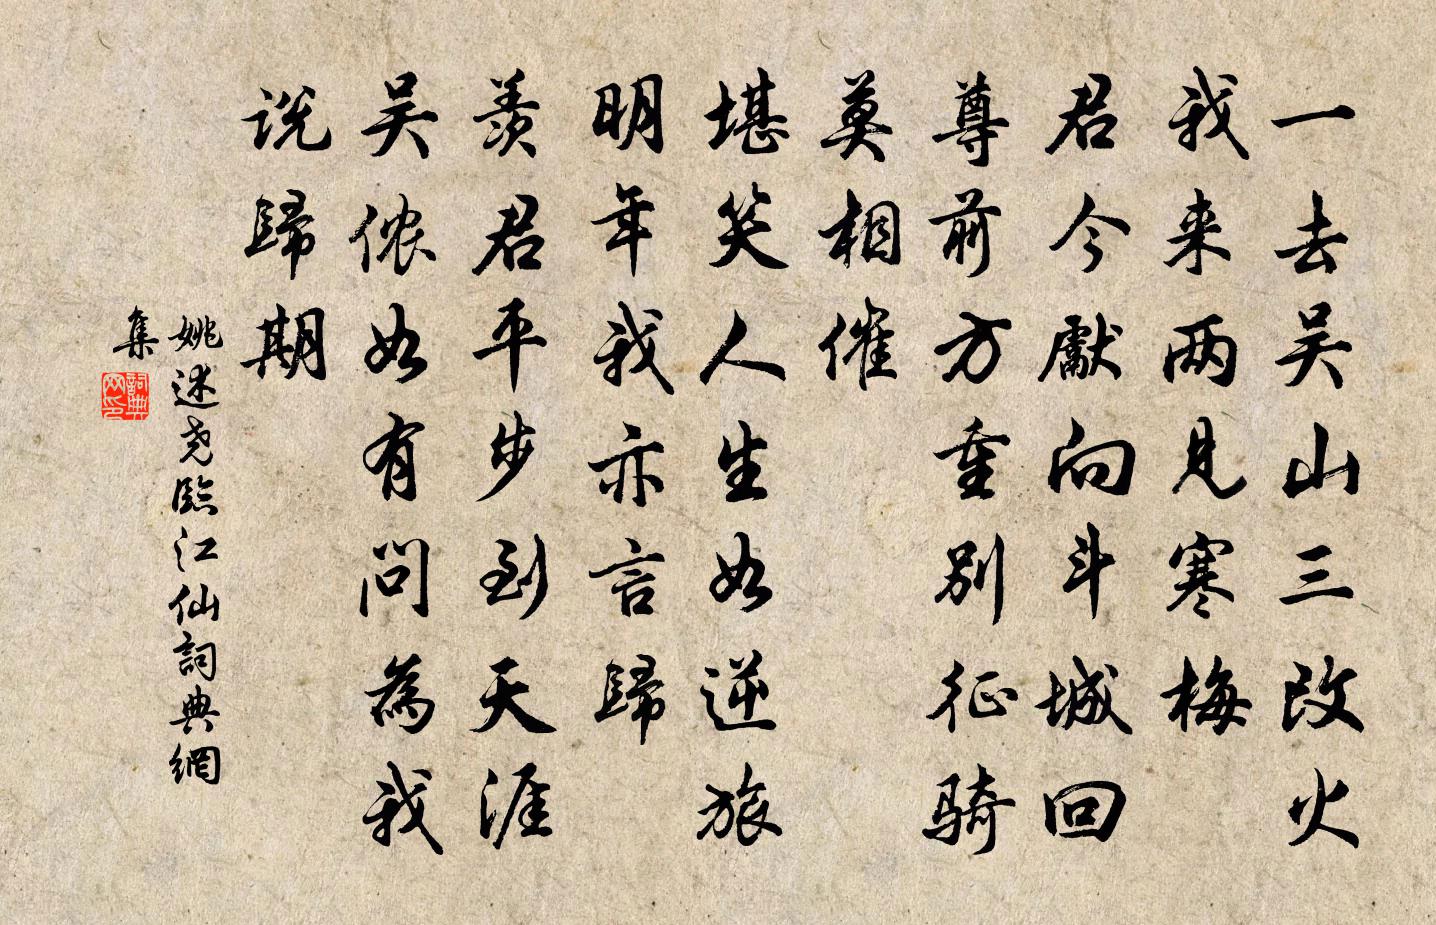 一去吴山三改火
我来两见寒梅
君今獻向斗城回
尊前方重别征骑
莫相催
堪笑人生如逆旅
明年我亦言歸
羨君平步到天涯
吴侬如有問為我
说歸期
姚述尧臨江仙詞典網
集
詞典网印